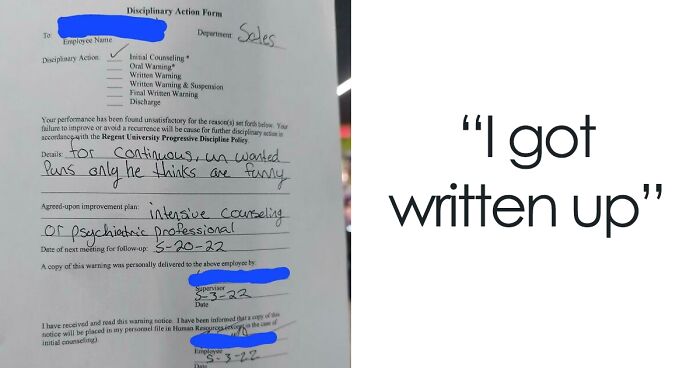 Disciplinary Action Form
To: Department: Sales
Employee Name
Disciplinary Action: ✓ Initial Counseling *
Oral Warning*
Written Warning
Written Warning & Suspension
Final Written Warning
Discharge
Your performance has been found unsatisfactory for the reason(s) set forth below. Your
failure to improve or avoid a recurrence will be cause for further disciplinary action in
accordance with the Regent University Progressive Discipline Policy.
Details: for continuous, un wanted
Puns only he thinks are funny
Agreed-upon improvement plan: intensive counseling
or psychiatric professional
Date of next meeting for follow-up: 5-20-22
A copy of this warning was personally delivered to the above employee by:
Supervisor
5-3-22
Date
I have received and read this warning notice. I have been informed that a copy of this
notice will be placed in my personnel file in Human Resources (except in the case of
initial counseling).
Employee
5-3-22
Date
“I got
written up”